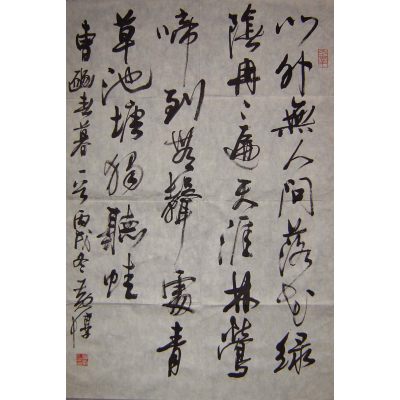 门外無人问落花緑
陰冉〻遍天涯林鶯
啼到無聲處青
草池塘獨聽蛙
曹豳春暮一首丙戌冬